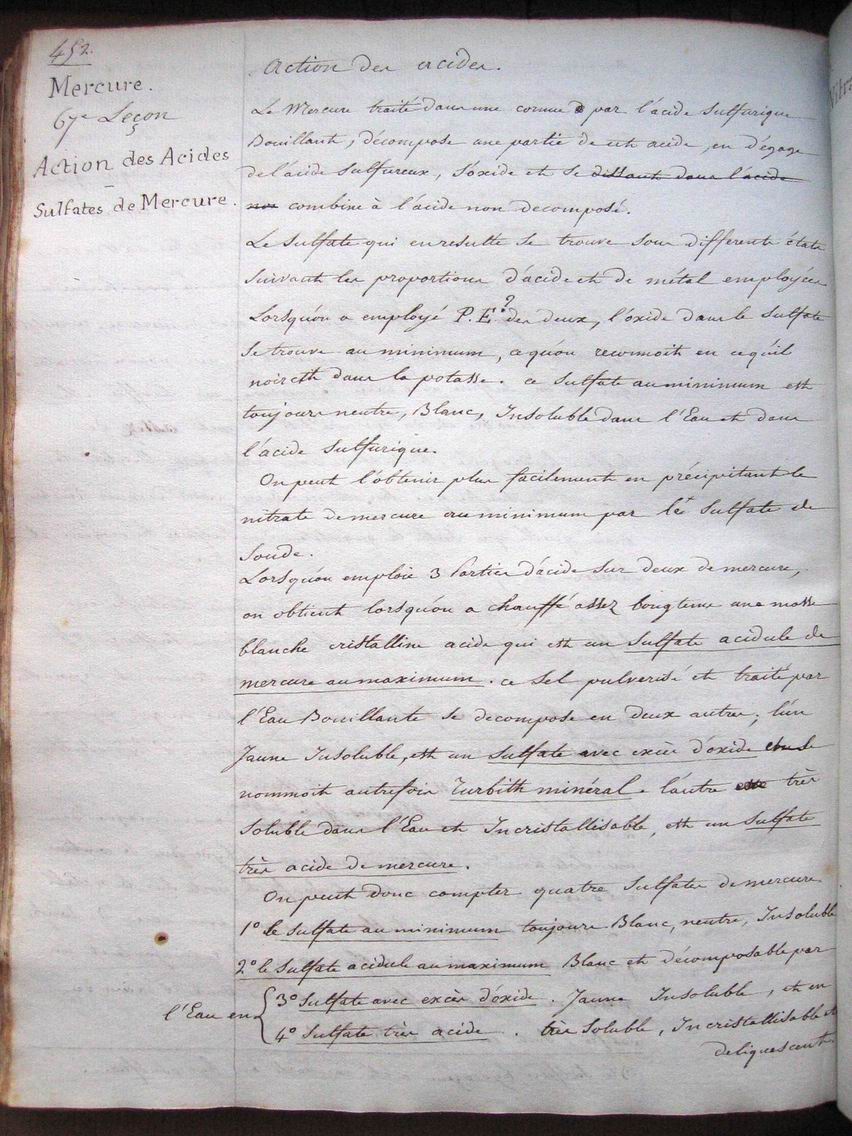 452.
Mercure.
67e Leçon
Action des Acides
Sulfates de Mercure.
Action des acides.
Le Mercure traité dans une cornue par l'acide Sulfurique
Bouillant, décompose une partie de cet acide, en dégage
de l'acide Sulfureux, s'oxide et se dissout dans l'acide
non combine à l'acide non decomposé.
Le Sulfate qui en resulte se trouve sous differents états
suivant les proportions d'acide et de métal employées
Lorsqu'on a employé P.E.? des deux, l'oxide dans le Sulfate
se trouve au minimum, ce qu'on reconnoit en ce qu'il
noircit dans la potasse. ce Sulfate au minimum est
toujours neutre, Blanc, Insoluble dans l'Eau et dans
l'acide Sulfurique.
On peut l'obtenir plus facilement en précipitant le
nitrate de mercure au minimum par le Sulfate de
Soude.
Lorsqu'on emploie 3 Parties d'acide sur deux de mercure,
on obtient lorsqu'on a chauffé assez longtems une masse
blanche cristalline acide qui est un Sulfate acidule de
mercure au maximum. ce Sel pulverisé et traité par
l'Eau Bouillante se decompose en deux autres; l'un
Jaune Insoluble, est un Sulfate avec excès d'oxide se
nommoit autrefois Turbith minéral. l'autre très
soluble dans l'Eau et Incristallisable, est un Sulfate
très acide de mercure.
On peut donc compter quatre Sulfates de mercure
1º le Sulfate au minimum toujours Blanc, neutre, Insoluble
2º le Sulfate acidule au maximum Blanc et décomposable par
l'Eau en { 3º Sulfate avec excès d'oxide. Jaune Insoluble, et en
4º Sulfate très acide. très Soluble, Incristallisable et
deliquescent.